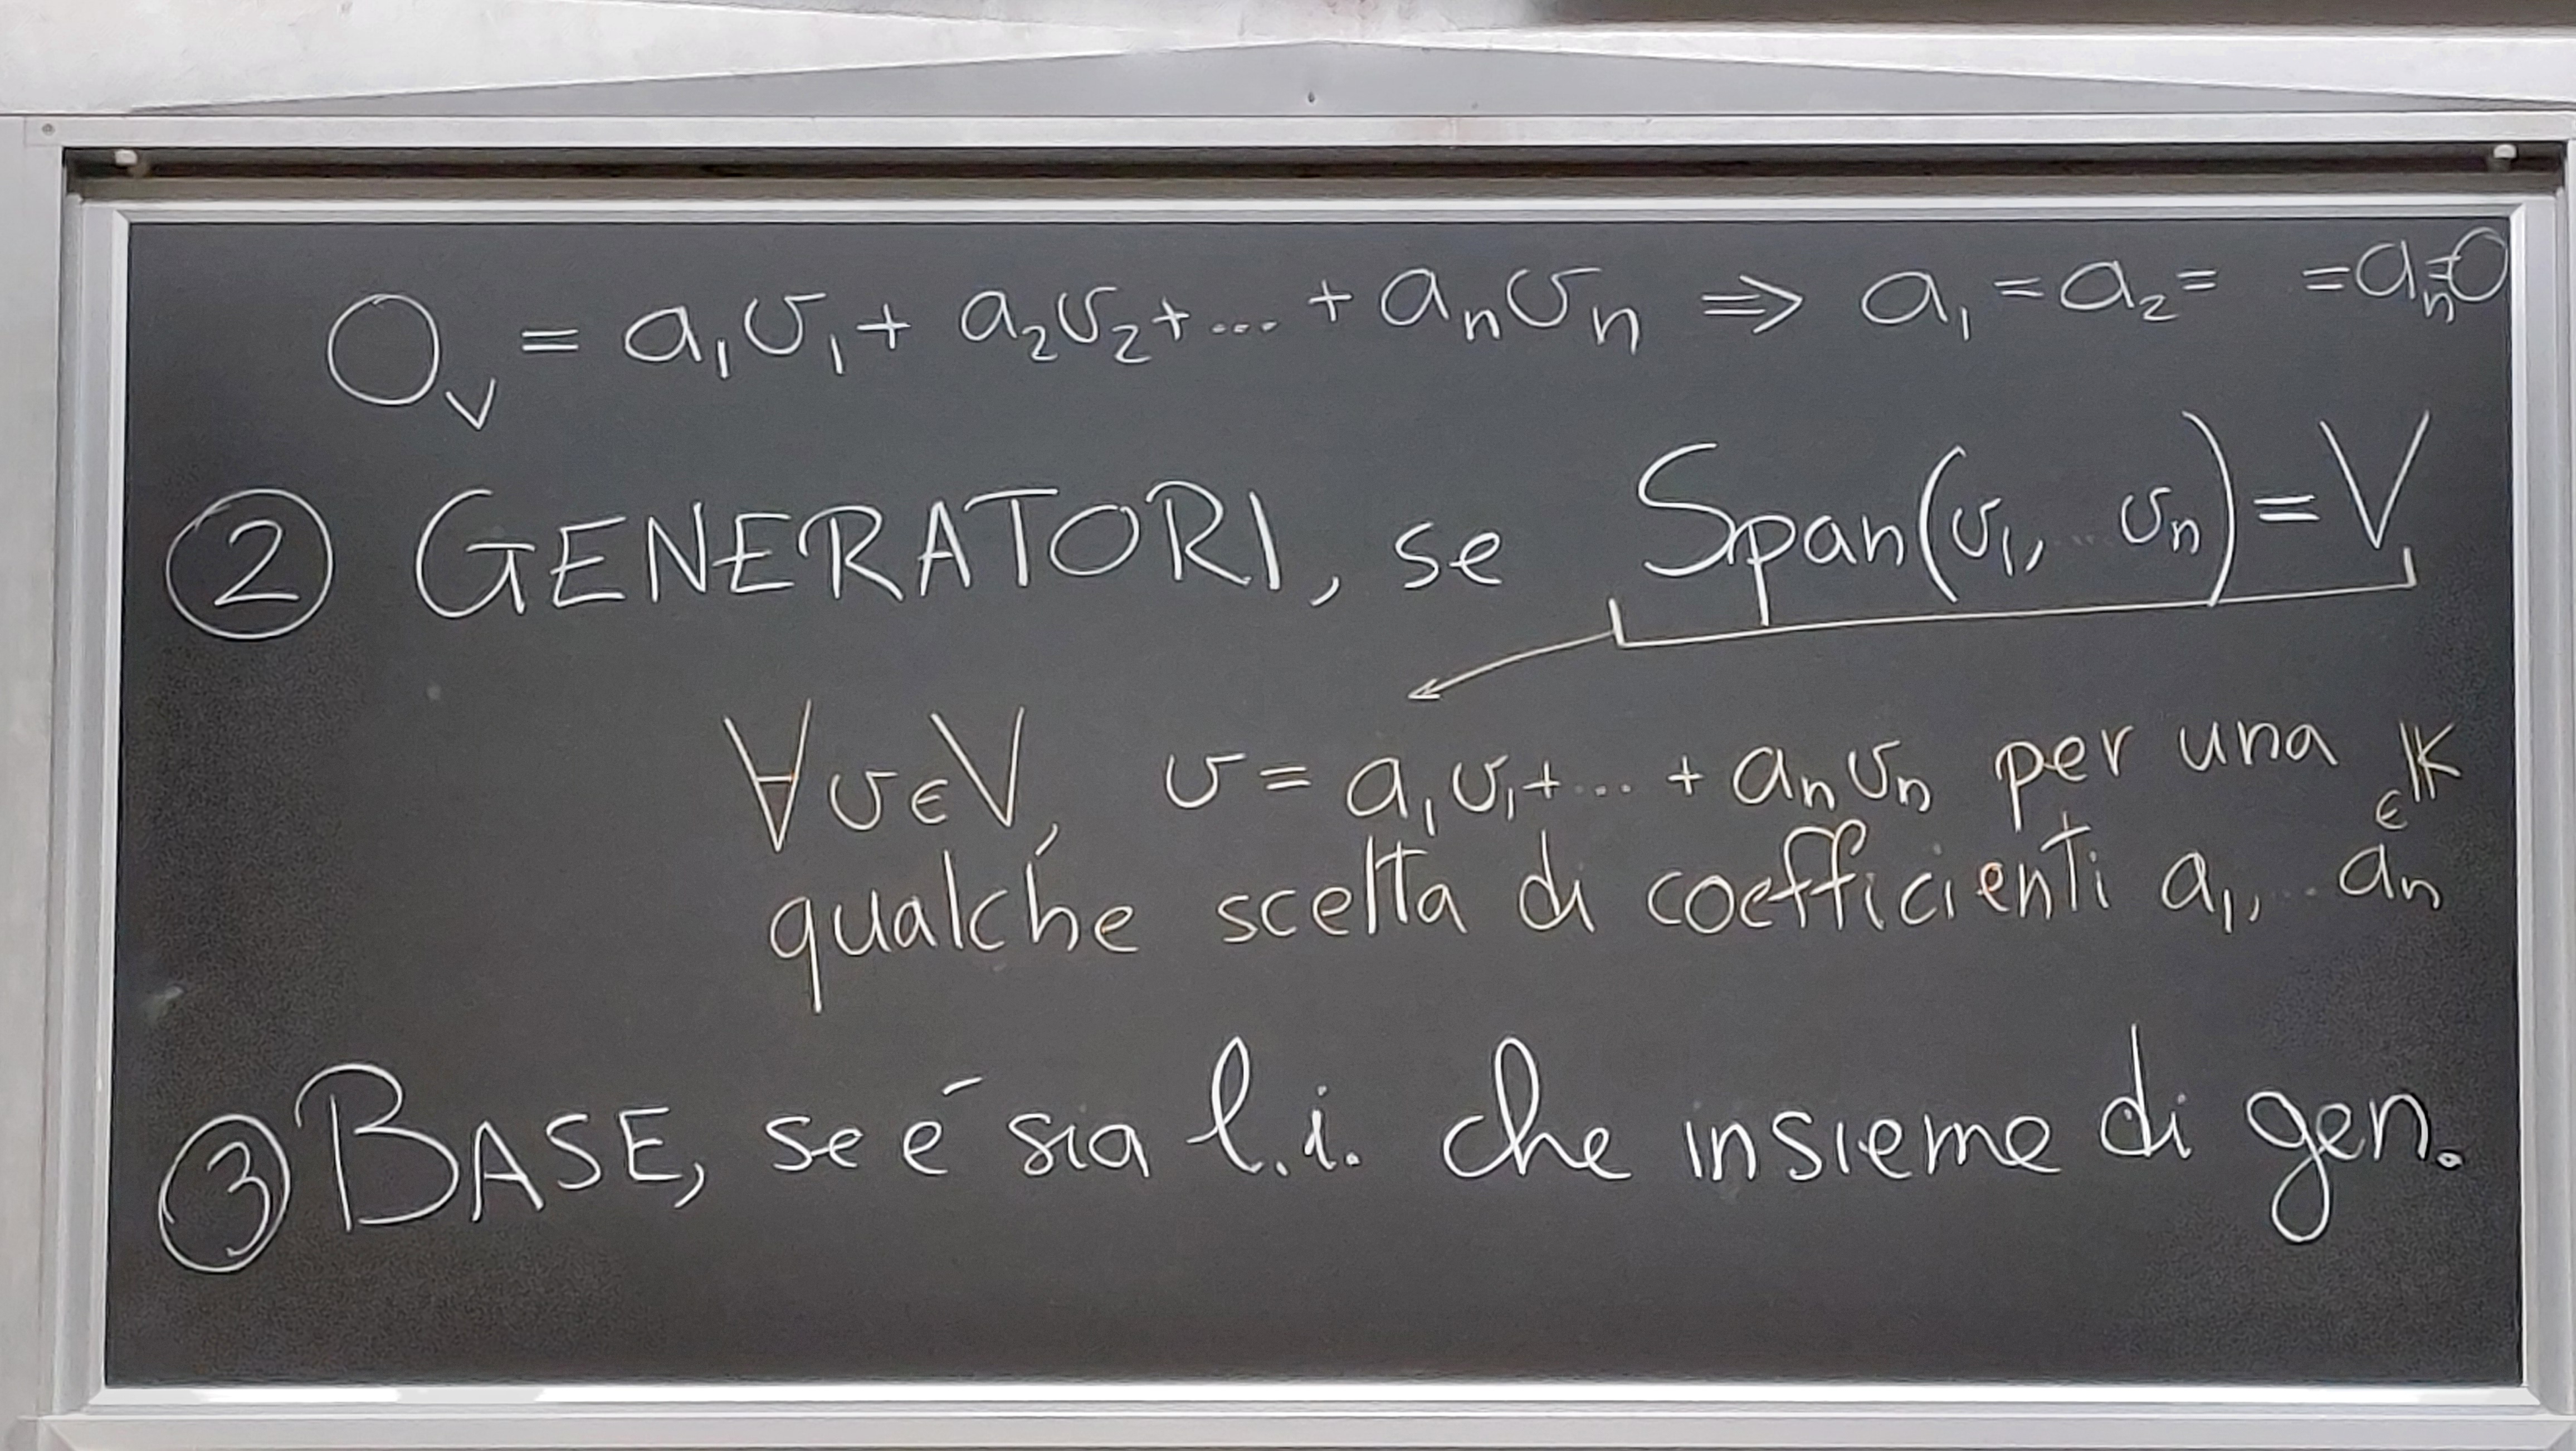 0_V = a₁v₁ + a₂v₂ + ... + aₙvₙ ⇒ a₁ = a₂ = = aₙ = 0
② GENERATORI, se Span(v₁, ... vₙ) = V
∀v∈V, v = a₁v₁ + ... + aₙvₙ per una
qualche scelta di coefficienti a₁, ... aₙ ∈ 𝕂
③ BASE, se é sia l.i. che insieme di gen.